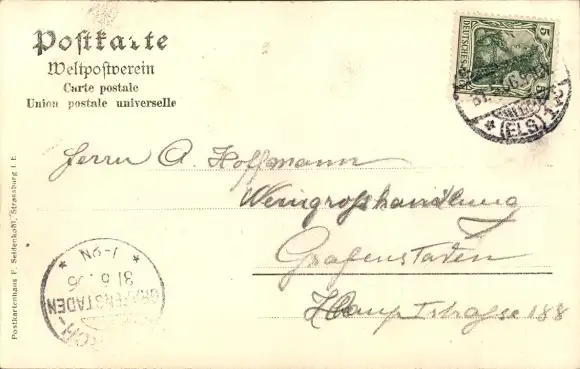 Postkarte
Weltpostverein
Carte postale
Union postale universelle
5 DEUTSCHES 5
(ELS.)
Herrn A. Hoffmann
Weingrosshandlung
Grafenstaden
Hauptstrasse 188
1-2N
31 8 06
GRAFENSTADEN
Postkartenhaus F. Seidenkohl, Strassburg i. E.